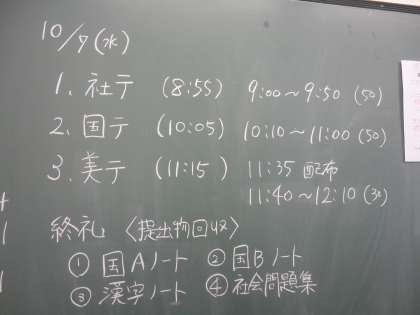 10/7(水)
1. 社テ (8:55) 9:00〜9:50 (50)
2. 国テ (10:05) 10:10〜11:00 (50)
3. 美テ (11:15) 11:35 配布
11:40〜12:10 (30)
終礼 〈提出物回収〉
① 国Aノート ② 国Bノート
③ 漢字ノート ④ 社会問題集